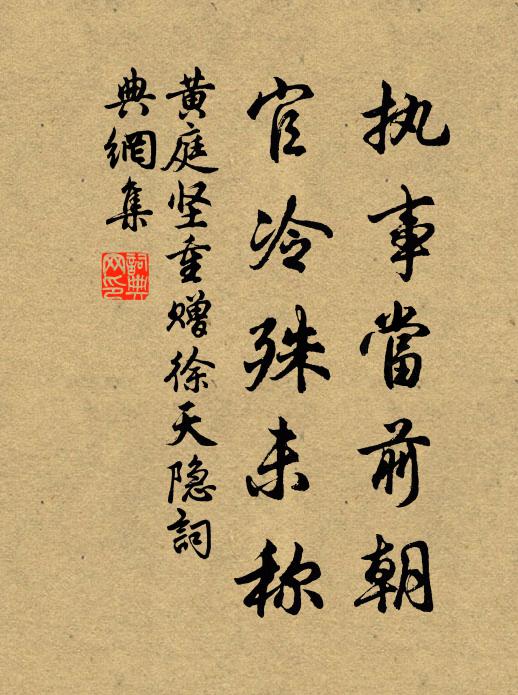 执事當前朝
官冷殊未称
黄庭坚重赠徐天隐詞
典網集
詞典網印